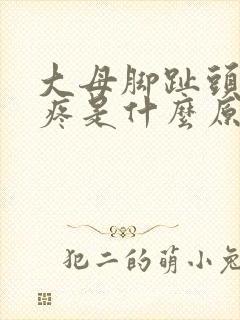 大母脚趾頭
疼是什麼原
犯二的萌小兔